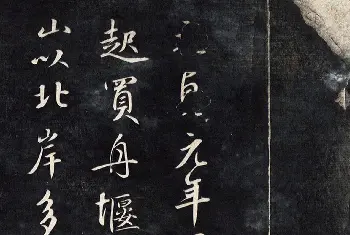 貞元年
起買舟堰
山以北岸多